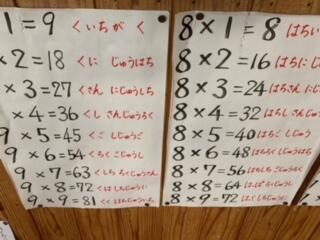 1=9 くいちが く
×2=18 くに じゅうはち
×3=27 くさん にじゅうしち
×4=36 くし さんじゅうろく
9×5=45 くご しじゅうご
9×6=54 くろく ごじゅうし
9×7=63 くしち ろくじゅうさん
9×8=72 くは しちじゅうに
9×9=81 くく はちじゅういち
8×1=8 はちいち
8×2=16 はちに じ
8×3=24 はちさん に
8×4=32 はちし さん
8×5=40 はちご しじゅう
8×6=48 はちろく しじゅうはち
8×7=56 はちしち ごじゅうろ
8×8=64 はっぱ ろくじゅうし
8×9=72 はっく しちじゅうに